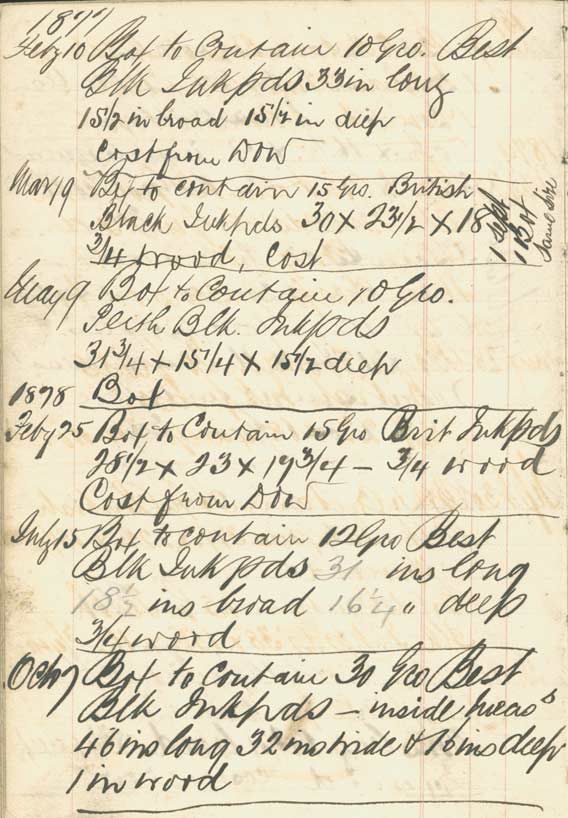 1877
Feby 10 Box to Contain 10 Gro. Best
Blk Inkpds 33 in long
15 1/2 in broad 15 1/2 in deep
Cost from DOW
Mar 19 Bx to contain 15 Gro. British
Black Inkpds 30 x 23 1/2 x 18
3/4 wood, Cost
1 Sept
1 Box
Same Size
May 9 Box to Contain 10 Gro.
Perth Blk. Inkpds
31 3/4 x 15 1/4 x 15 1/2 deep
Box
1878
Feby 25 Box to Contain 15 Gro Brit Inkpds
28 1/2 x 23 x 19 3/4 - 3/4 wood
Cost from DOW
July 15 Box to contain 12 Gro Best
Blk Inkpds 31 ins long
18 1/2 ins broad 16 1/4 " deep
3/4 wood
Oct 7 Box to contain 30 Gro Best
Blk Inkpds - inside meass
46 ins long 32 ins wide & 16 ins deep
1 in wood